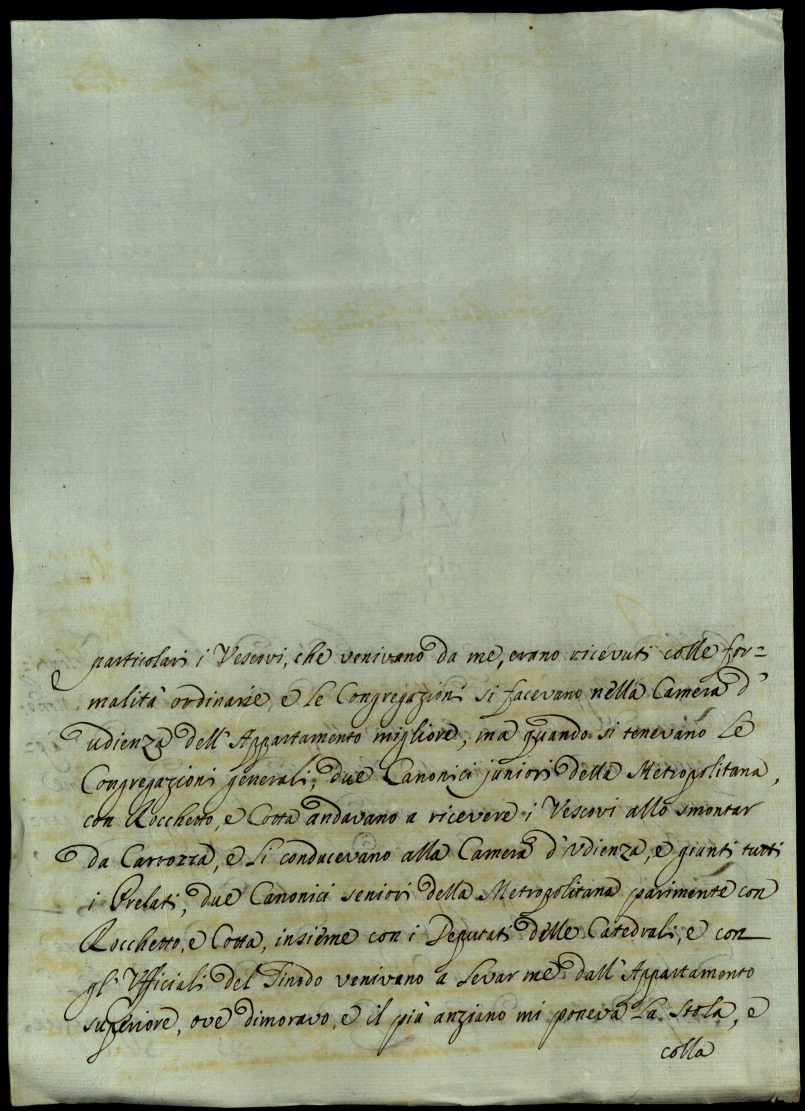 particolari i Vescovi, che venivano da me, erano ricevuti colle for=
malità ordinarie, e le Congregazioni si facevano nella Camera d'
udienza dell'Appartamento migliore, ma quando si tenevano le
Congregazioni generali, due Canonici juniori della Metropolitana,
con Rocchetto, e Cotta andavano a ricevere i Vescovi allo smontar
da Carrozza, e li conducevano alla Camera d'Udienza, e giunti tutti
i Prelati, due Canonici seniori della Metropolitana parimente con
Rocchetto, e Cotta, insieme con i Deputati delle Catedrali, e con
gl'Ufficiali del Sinodo venivano a levar me dall'Appartamento
superiore, ove dimoravo, e il più anziano mi poneva la Stola, e
colla